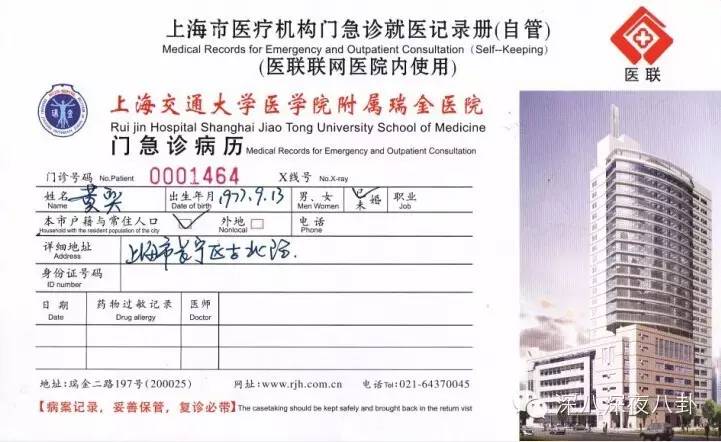 上海市医疗机构门急诊就医记录册(自管)
Medical Records for Emergency and Outpatient Consultation (Self--Keeping)
(医联联网医院内使用)
医联
瑞金
上海交通大学医学院附属瑞金医院
Rui jin Hospital Shanghai Jiao Tong University School of Medicine
门急诊病历 Medical Records for Emergency and Outpatient Consultation
门诊号码 No.Patient 0001464 X线号 No.X-ray
姓名 Name 黄奕 出生年月 Date of birth 1977.9.13 男、女 Men Women 已 未 婚 职业 Job
本市户籍与常住人口 Household with the resident population of the city 外地 Nonlocal 电话 Phone
详细地址 Address 上海市长宁区古北路.
身份证号码 ID number
日期 Date 药物过敏记录 Drug allergy 医师 Doctor
地址:瑞金二路197号(200025) 网址:www.rjh.com.cn 电话Tel:021-64370045
【病案记录，妥善保管，复诊必带】 The casetaking should be kept safely and brought back in the return visit
深八深夜八卦